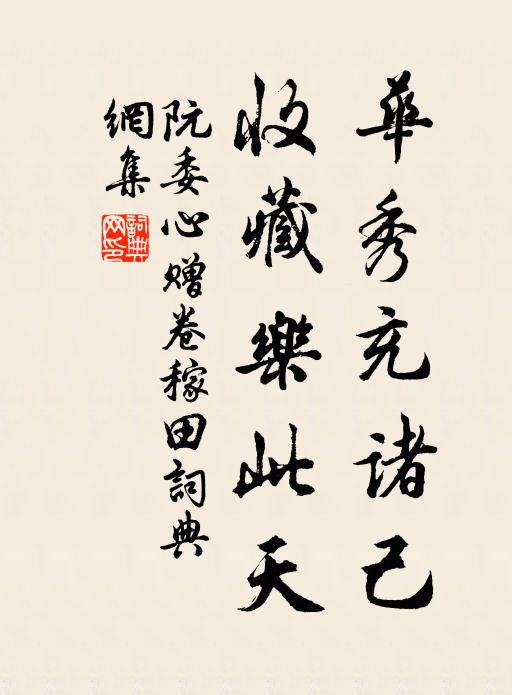 華秀充诸己
收藏樂此天
阮委心赠卷稼田詞典
網集
詞典网印